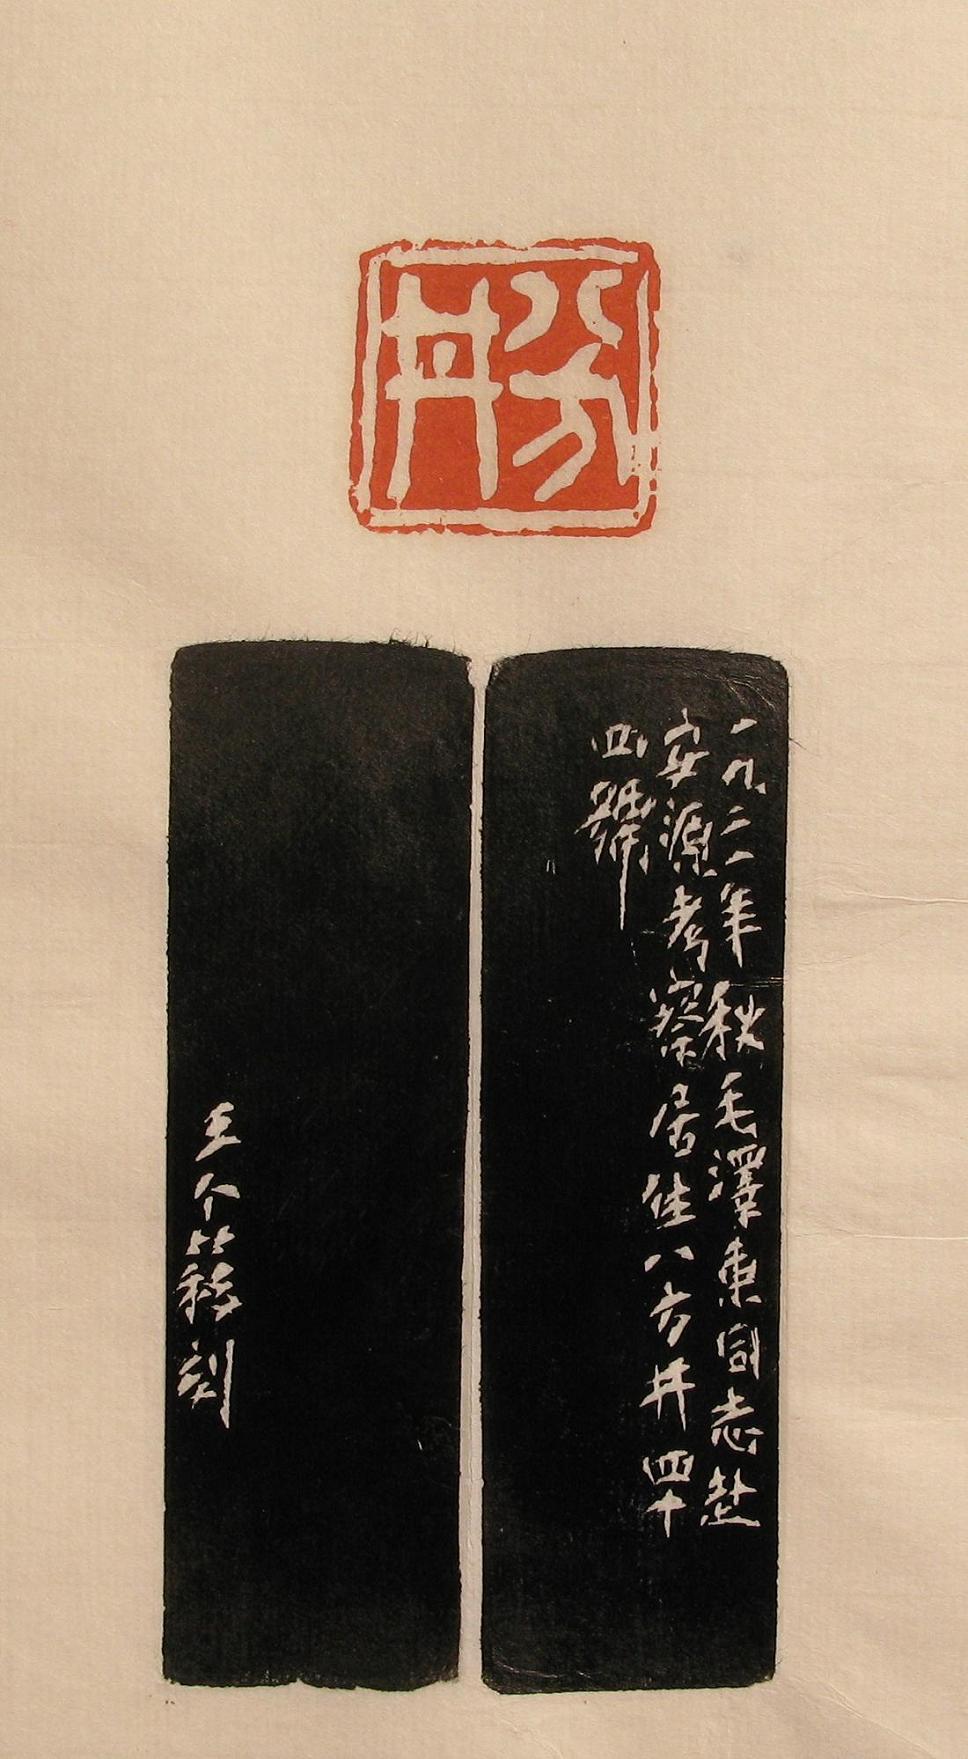 八方井
一九二一年秋毛澤東同志赴
安源考察居住八方井四十
四號
王个簃刻